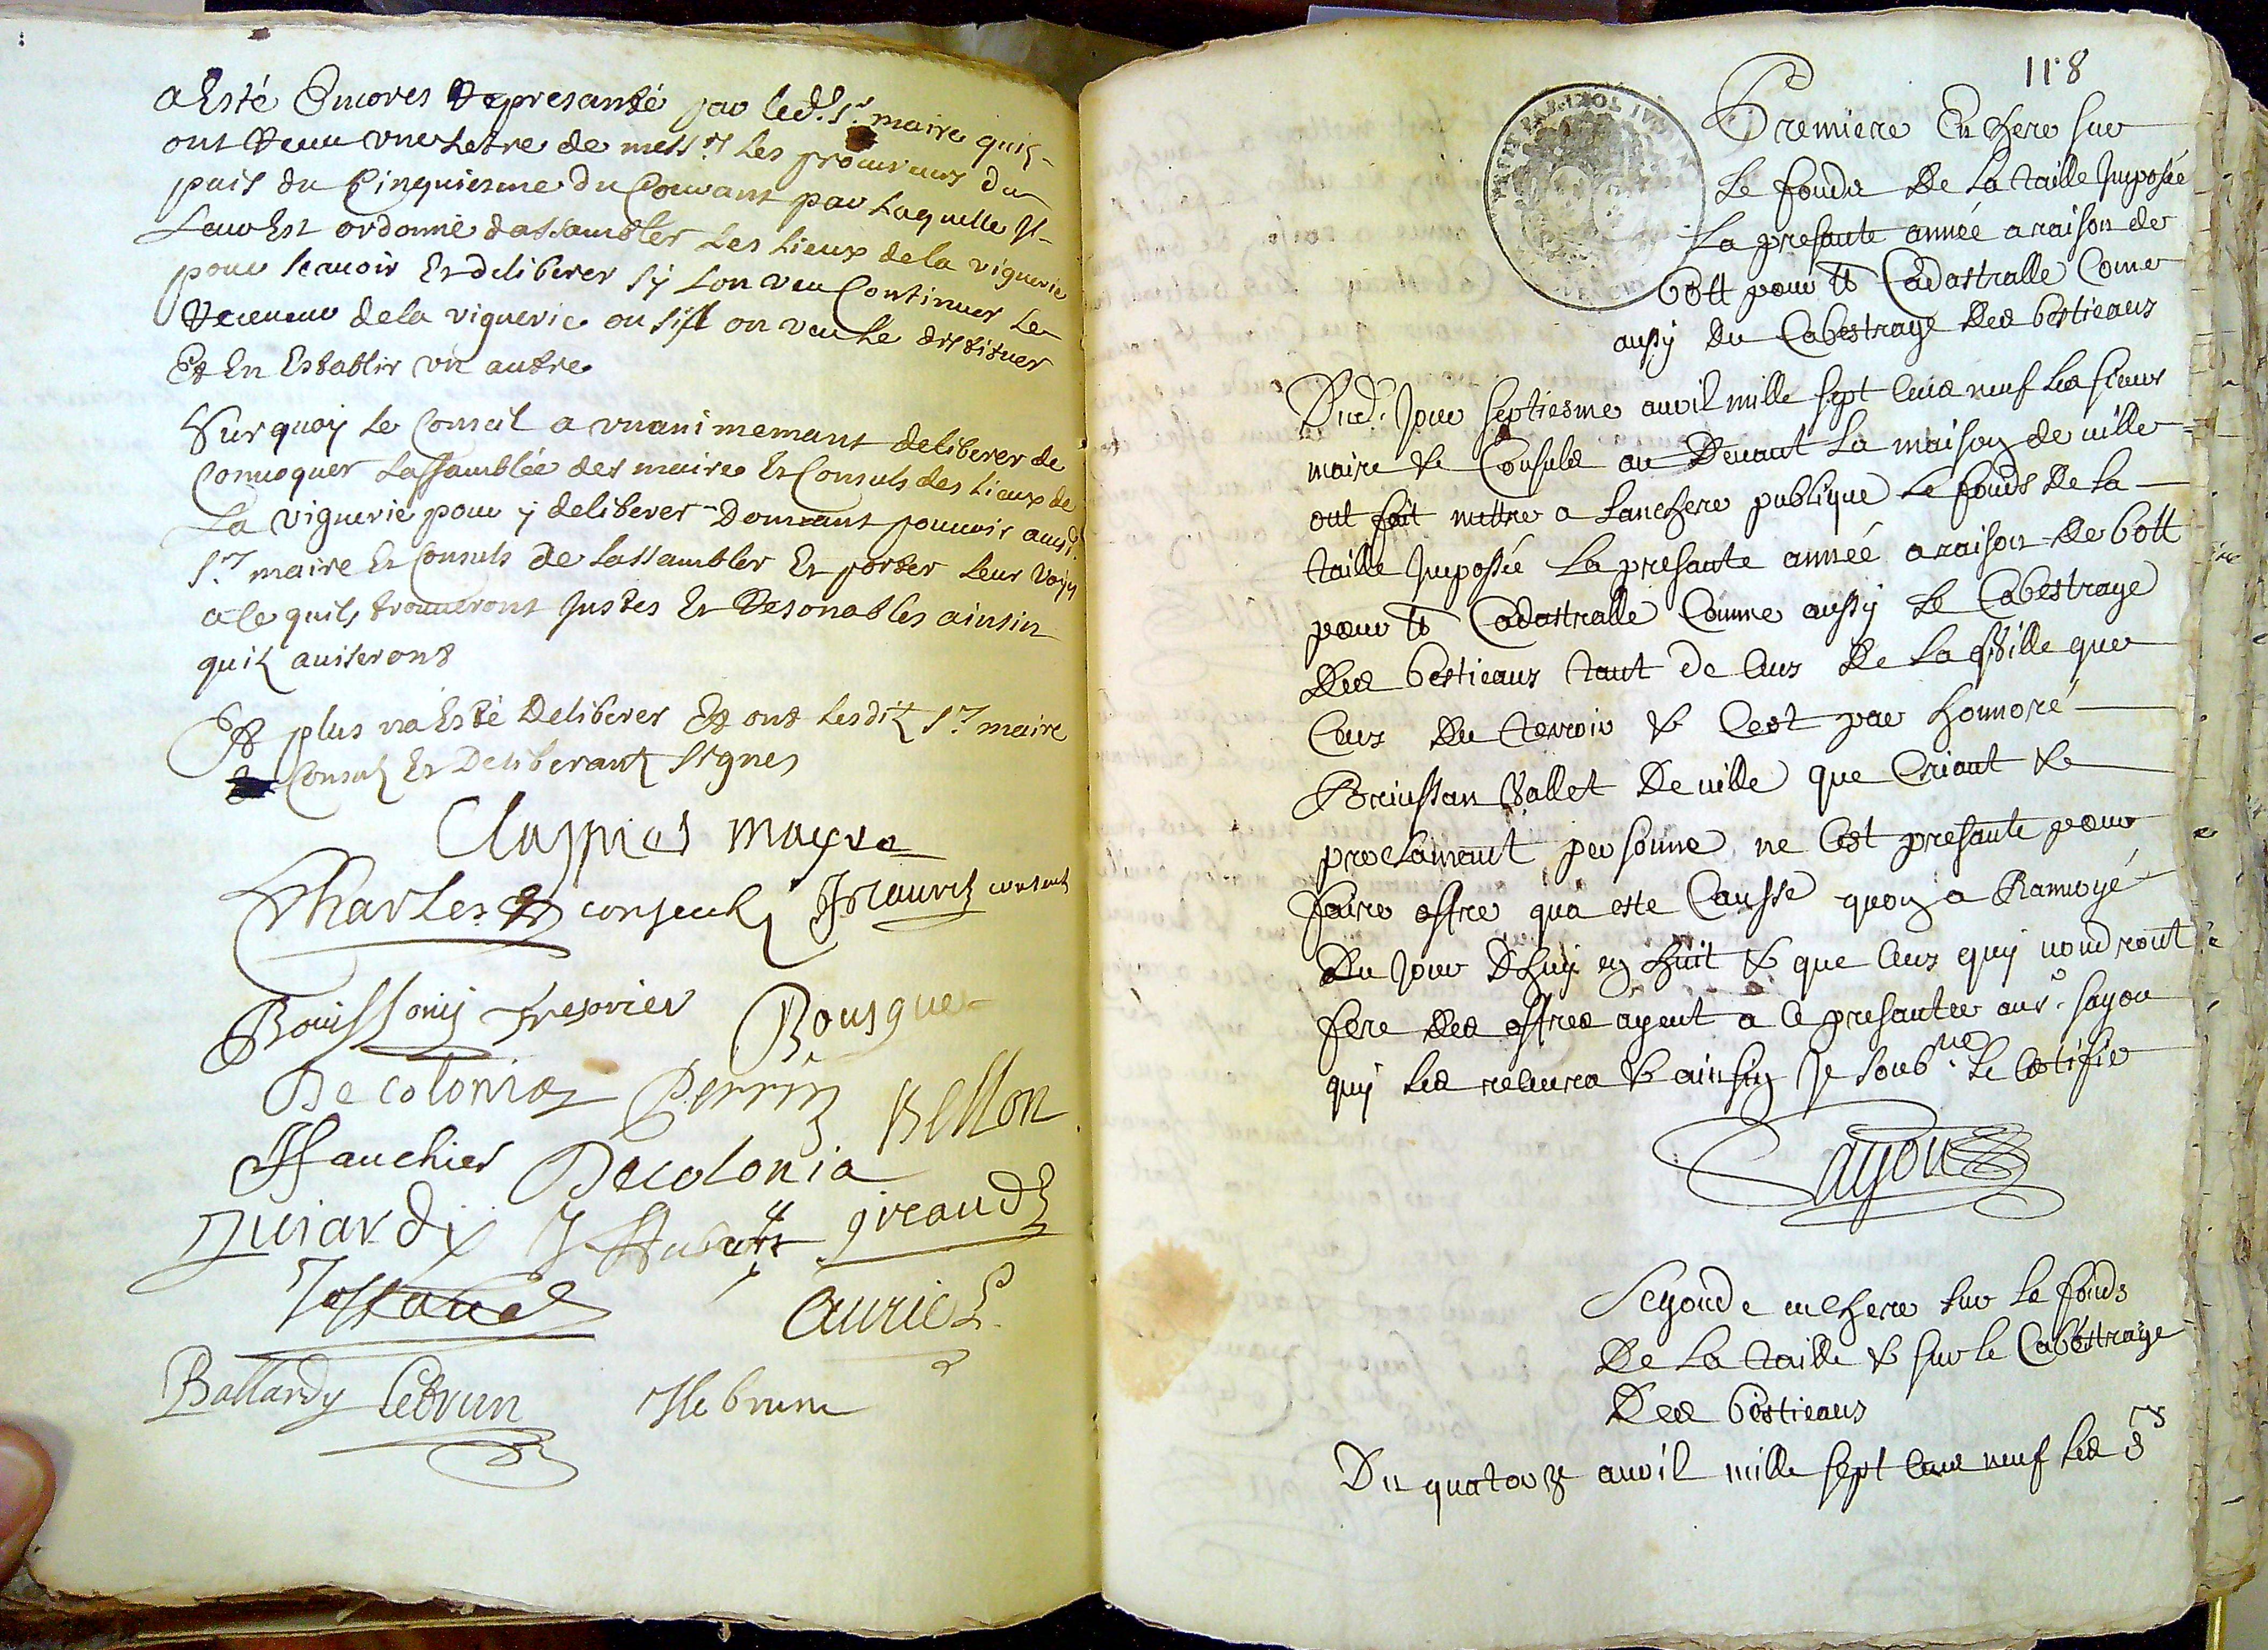 a Esté Encores Represanté par led. Sr. maire quils
ont Receu une Letre de messrs Les procureurs du
païs du Cinquiesme du Courant par Laquelle Il
Leur Est ordonné dassambler Les Lieux de la viguerie
pour scavoir Et deliberer sÿ Lon veu Continuer Le
Receveur de la viguerie ou sil on veu Le distituer
Et En Establir un autre
Surquoy Le Conseil a unanimemant deliberer de
Convoquer Lassamblée des maires Et Consuls des Lieux de
La viguerie pour ÿ deliberer Donnant pouvoir ausd.
Srs maire Et Consuls de Lassambler Et porter Leur voix
a Ce quils trouveront Justes Et Resonables ainsin
quils aviseront
Et plus na Esté Deliberer Et ont Lesdits Srs maire
Consuls Et Deliberants Signes
Clappies mayre
Charles consul consul
Bouissony Tresorier Bousquet
De colonia Perrin Bellon
ffauchier Decolonia
giraud
auriol
Ballardy Lebrun H lebrun
118
Premiere En chere sur
Le fonds De La taille Imposée
La presante année a raison de
6 tt pour tt Cadastralle Come
aussÿ du Cabestrage Des bestieaus
Dud. Jour septiesme avril mille sept Cens neuf Les sieurs
maire & Consuls au Devant La maison de ville
ont fait mettre a Lanchere publique Le fonds De La
taille Imposée La presante année a raison De 6 tt
pour tt Cadastralle Comme aussÿ Le Cabestrage
Des bestieaus tant de Ceus De La Ville que
Ceus Du terroir & Cest par honnoré
Vallet De ville que Criant &
proclamant personne ne Cest presanté pour
faire offre qua esté Causse quon a Ramvoyé
Du Jour Dhuy en huit & que Ceus quy voudront
fere Des offres ayent a Ce presanter au sr. sayou
quy Les recevra & ainsin Je soubné Le Certifie
Sayou
Segonde enchere sur Le fonds
De La taille & sur le Cabestrage
Des bestieaus
Du quatorze avril mille sept Cens neuf Les srs